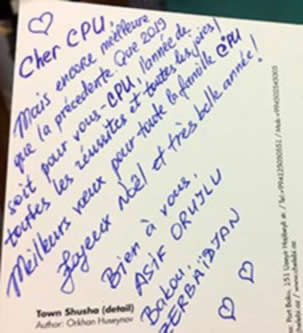 Cher CPU,
Mais encore meilleure
que la précedente. Que 2019
soit pour vous - CPU, l'année de
toutes les réussites et toutes les joies!
Meilleurs vœux pour toute la famille CPU
Joyeux Noël et très belle année!
Bien à vous,
ASIF ORUJLU
Bakou,
AZERBAÏDJAN
Town Shusha (detail)
Author: Orkhan Huseynov
Port Baku, 151